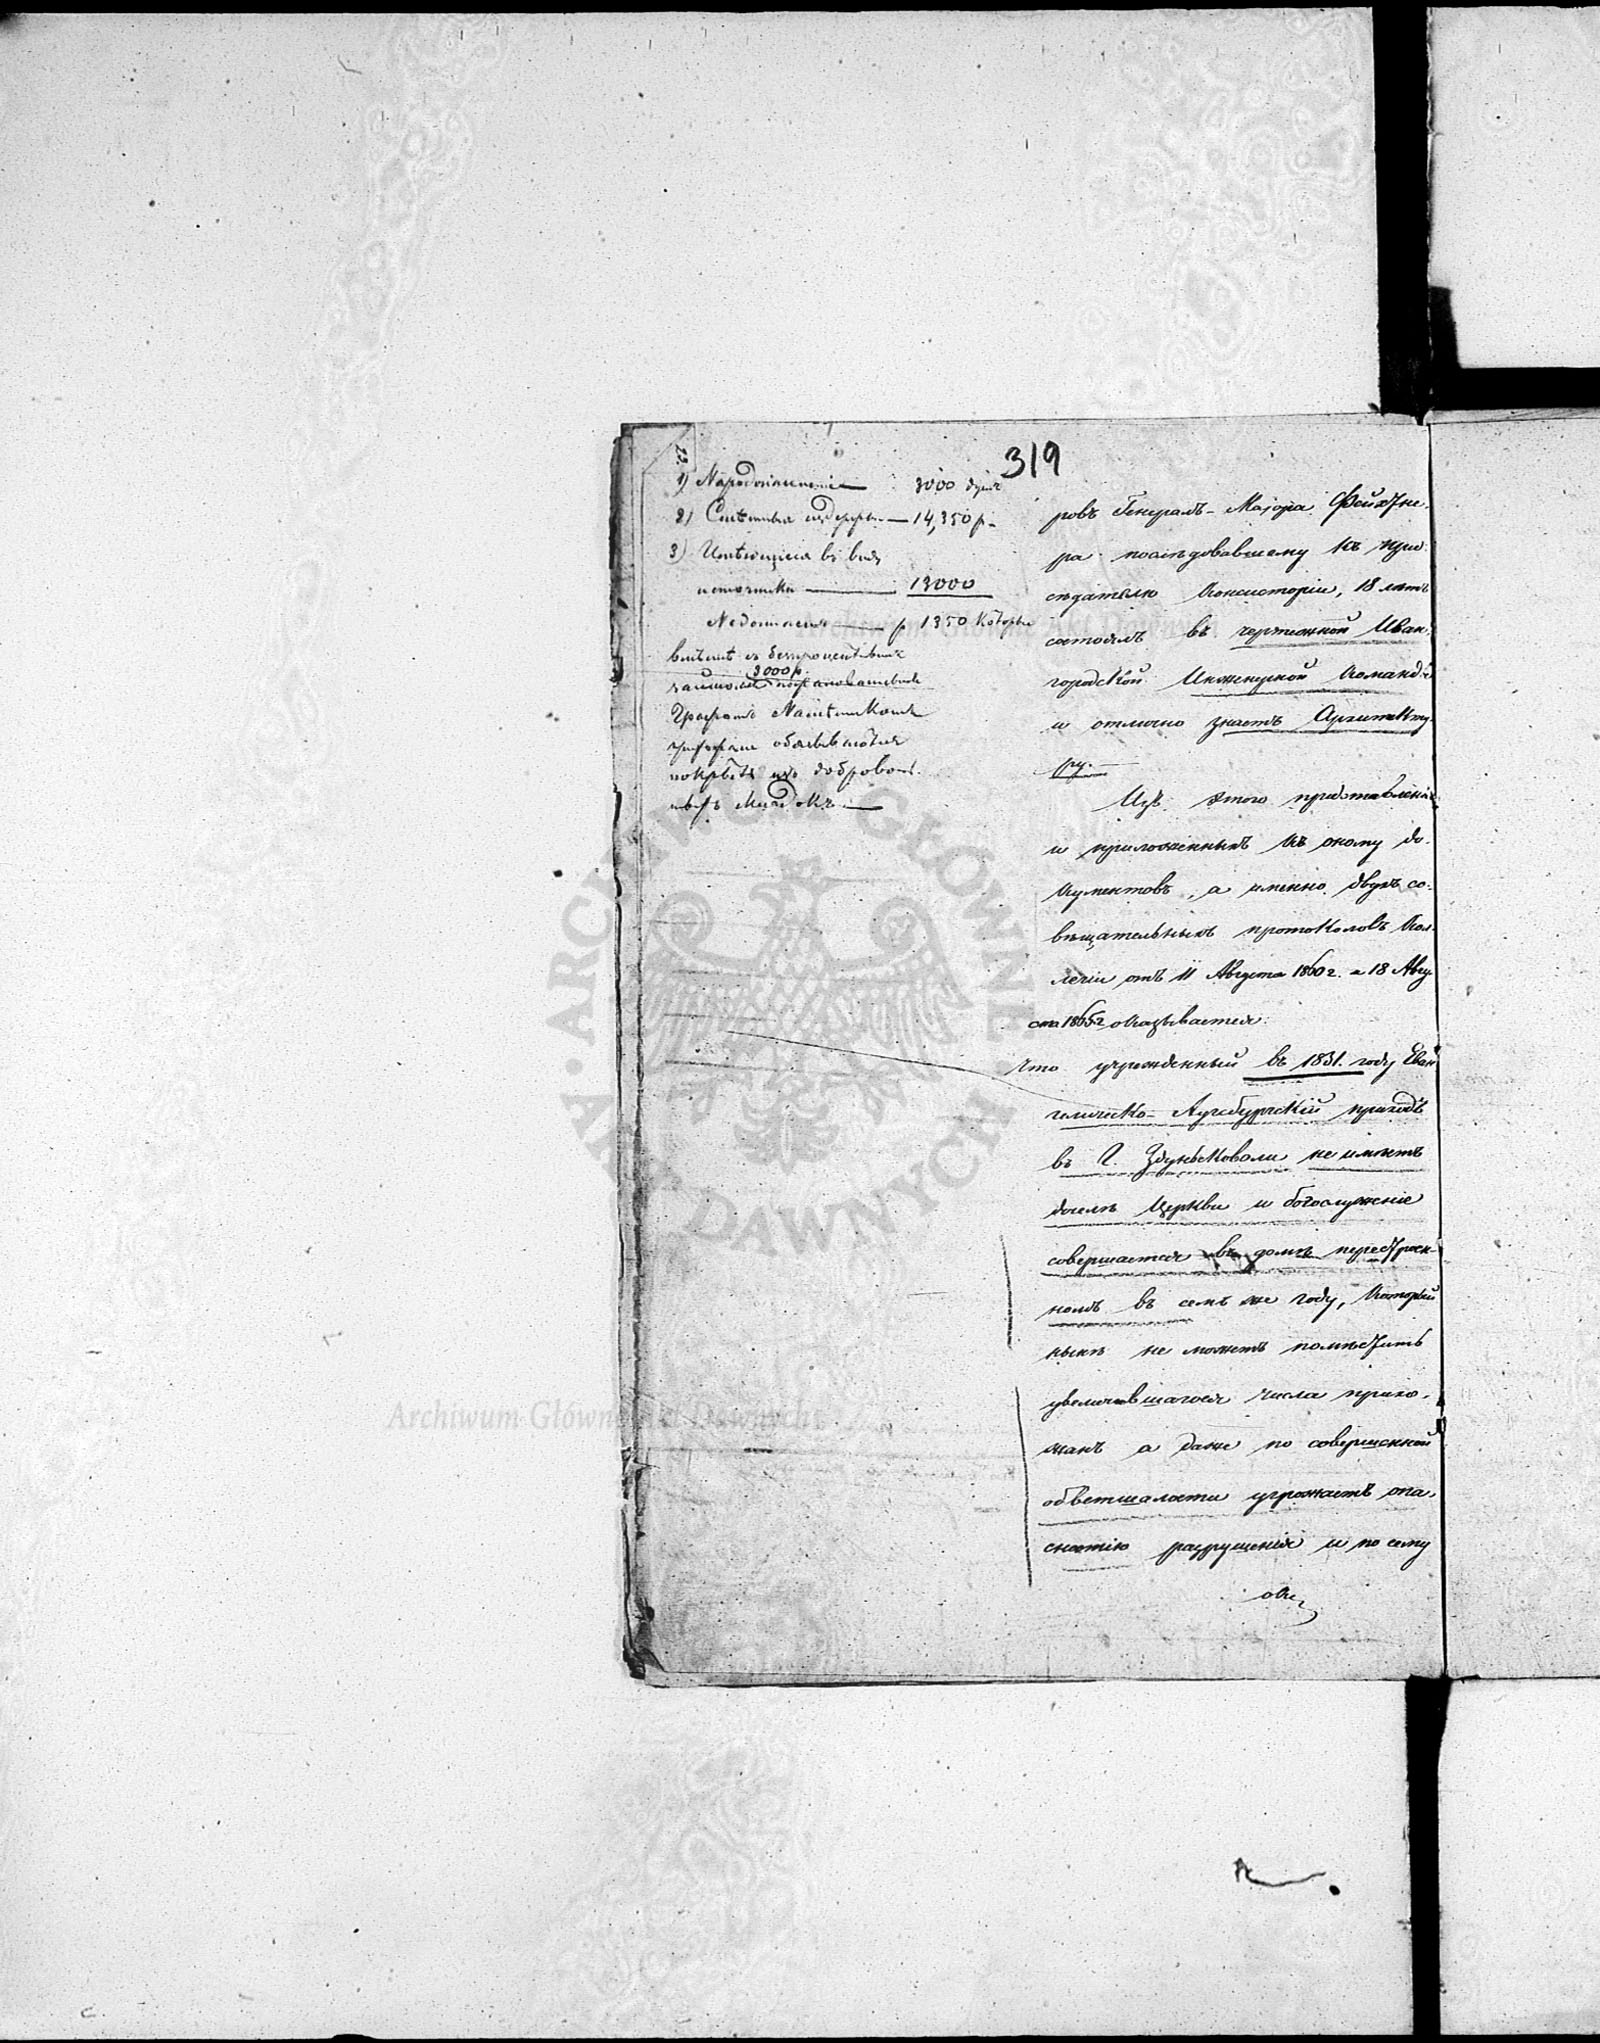 319
1) Народонаселенія 3000 душъ
2) Смѣтныя издержки — 14,350 р.
3) Имѣющіеся въ виду
источники — 13000
Недостаетъ — р 1350 которые
вмѣстѣ съ безпроцентнымъ
3000 р.
займомъ
Графомъ Намѣстникомъ
покрыть изъ доброволь.
ровъ Генералъ-Маіора Фейхтне-
ра послѣдовавшему къ пред-
сѣдателю Консисторіи, 18 лѣтъ
состоялъ въ чертежной Иван-
городской Инженерной Команды
и отлично знаетъ Архитекту-
ру.—
Изъ этого представленія
и приложенныхъ къ оному до-
кументовъ, а именно двухъ со-
вѣщательныхъ протоколовъ Кол-
легіи отъ 11 Августа 1860 г. и 18 Авгу-
ста 1865 г оказывается:
что учрежденный въ 1831. году Еван-
гелическо-Аугсбургскій приходъ
въ г. Здунсковоли не имѣетъ
доселѣ Церкви и богослуженіе
совершается въ домѣ перестроен-
номъ въ семъ же году, который
нынѣ не можетъ помѣстить
увеличившагося числа прихо-
жанъ а даже по совершенной
обветшалости угрожаетъ опа-
сностію разрушенія и по сему
Archiwum Główne Akt Dawnych
ARCHIWUM GŁÓWNE AKT DAWNYCH